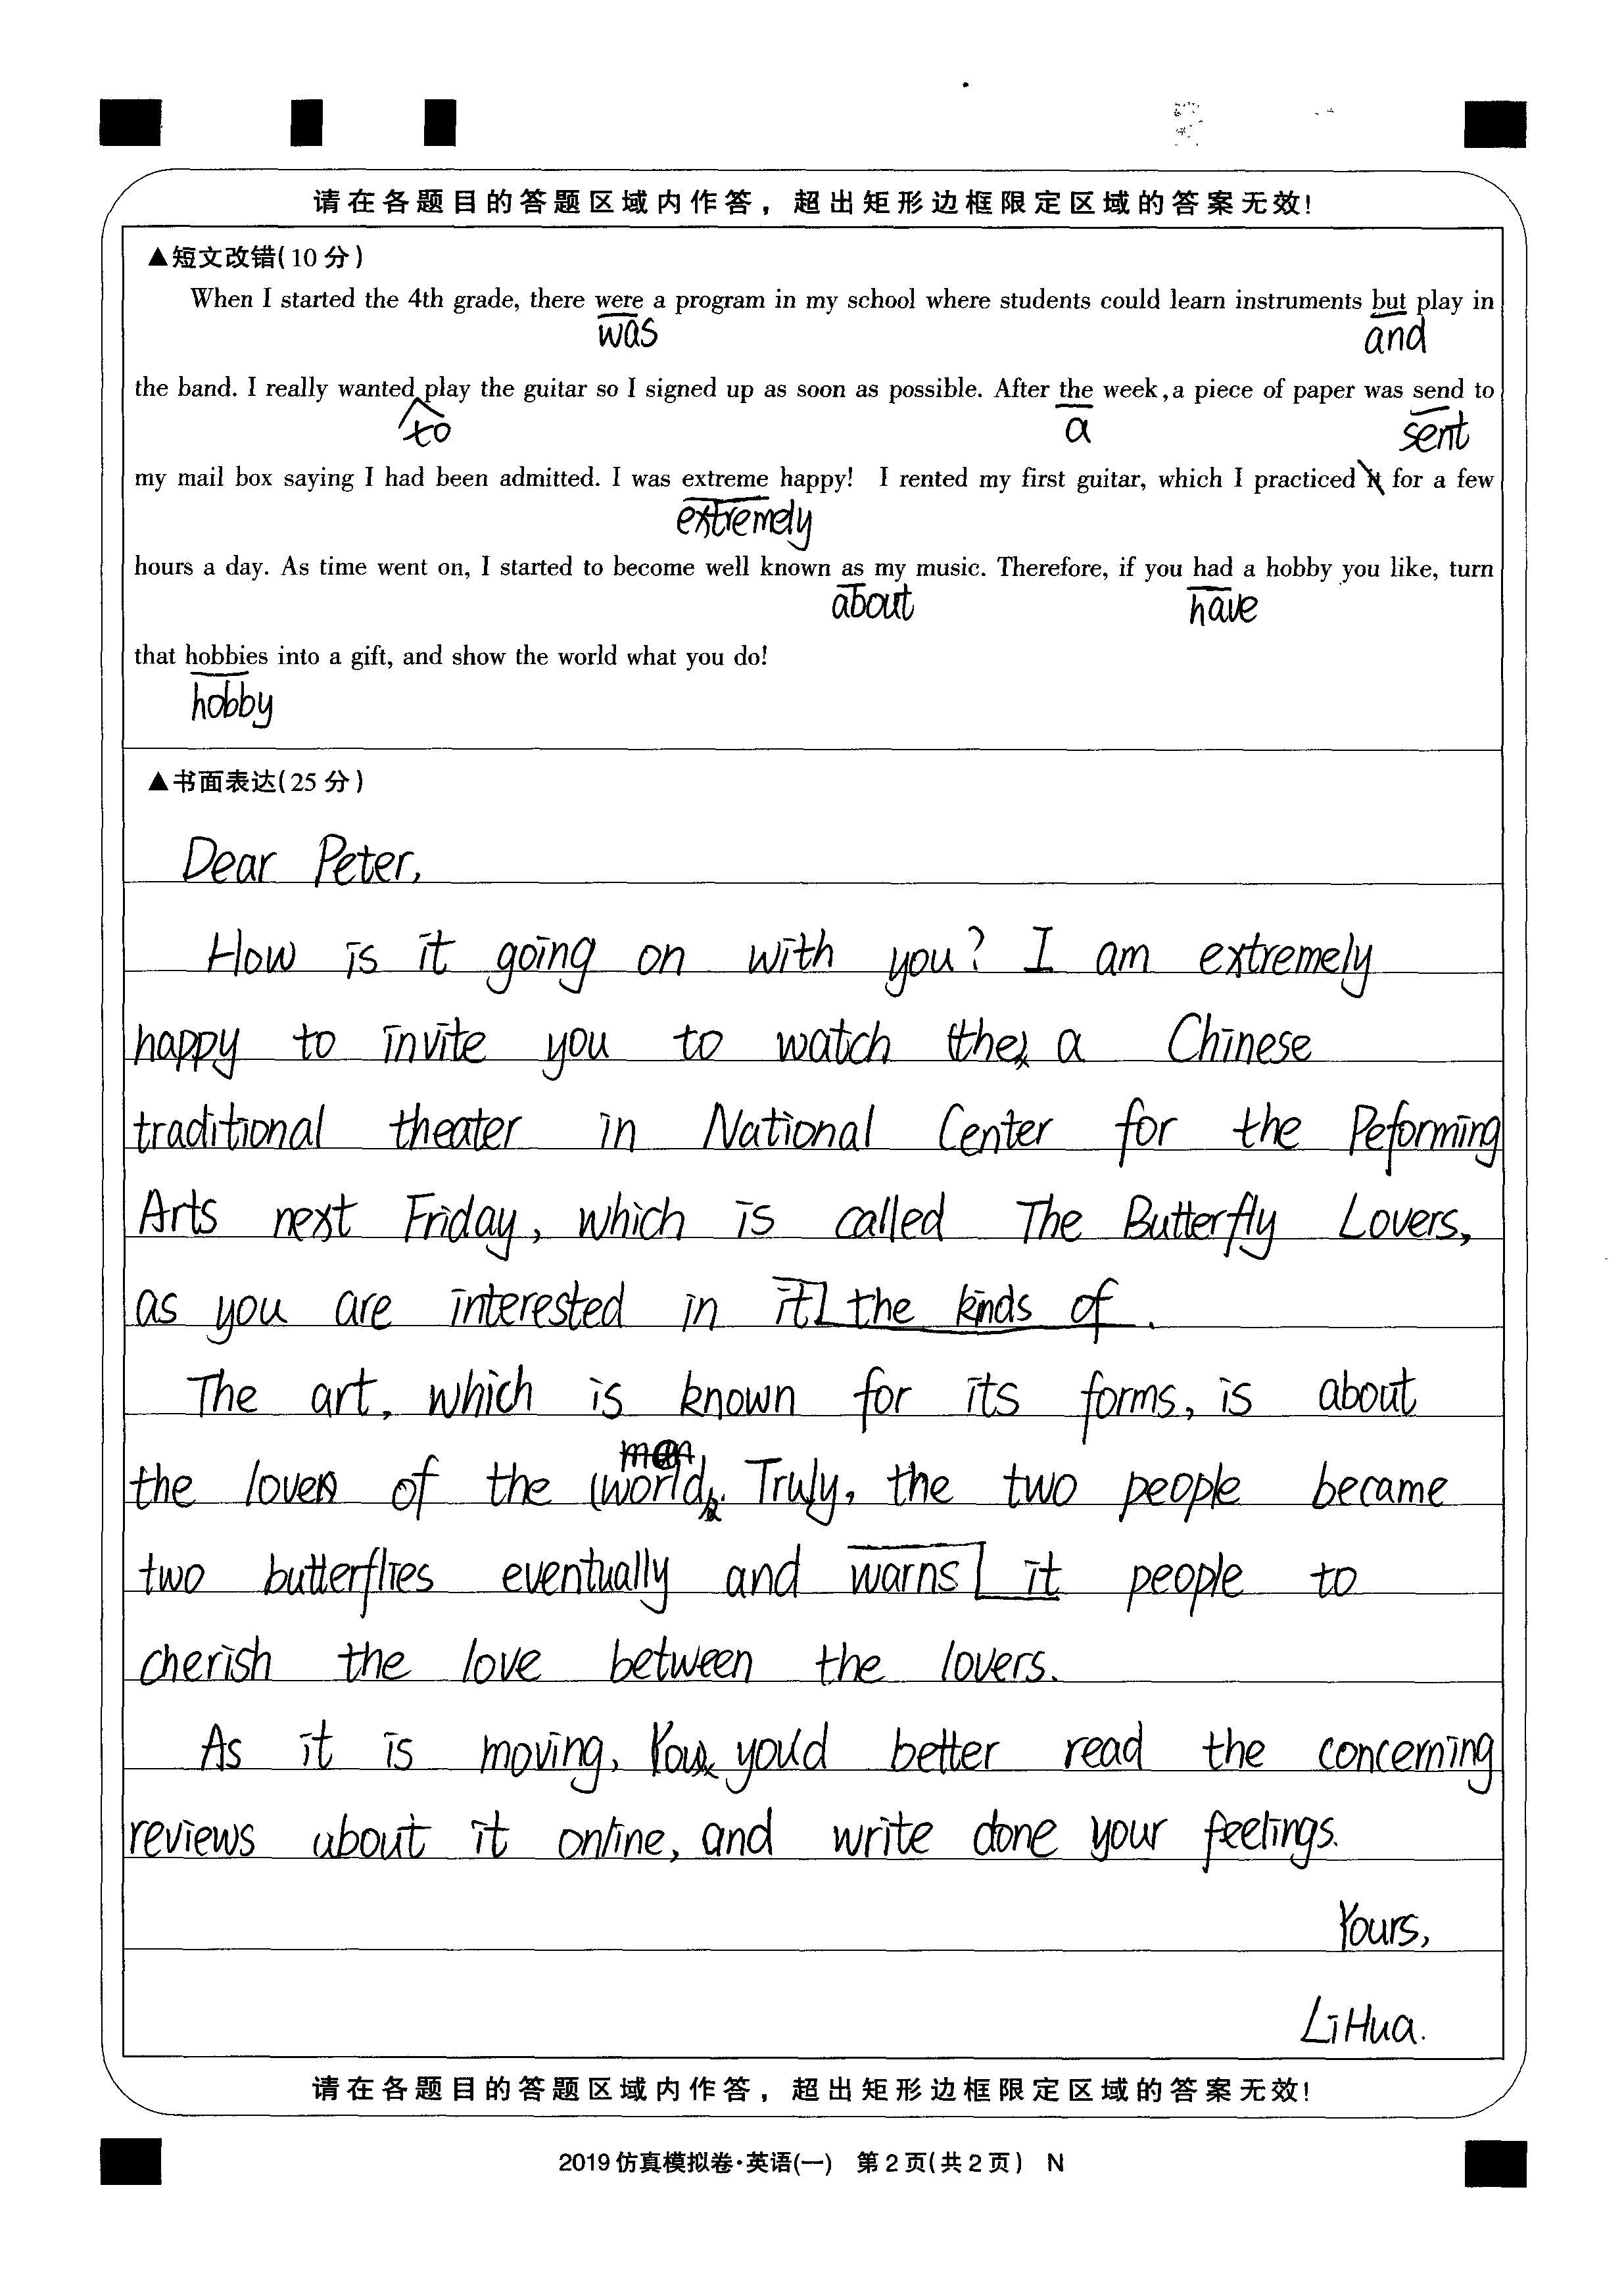 请在各题目的答题区域内作答，超出矩形边框限定区域的答案无效!
▲短文改错(10分)
When I started the 4th grade, there were a program in my school where students could learn instruments but play in
was and
the band. I really wanted play the guitar so I signed up as soon as possible. After the week, a piece of paper was send to
to a sent
my mail box saying I had been admitted. I was extreme happy! I rented my first guitar, which I practiced it for a few
extremely
hours a day. As time went on, I started to become well known as my music. Therefore, if you had a hobby you like, turn
about have
that hobbies into a gift, and show the world what you do!
hobby
▲书面表达(25分)
Dear Peter,
How is it going on with you? I am extremely
happy to invite you to watch (the) a Chinese
traditional theater in National Center for the Peforming
Arts next Friday, which is called The Butterfly Lovers,
as you are interested in it the kinds of.
The art, which is known for its forms, is about
man
the lover of the (world). Truly, the two people became
two butterflies eventually and warns it people to
cherish the love between the lovers.
As it is moving, You you'd better read the concerning
reviews about it online, and write done your feelings.
Yours,
Li Hua.
请在各题目的答题区域内作答，超出矩形边框限定区域的答案无效!
2019仿真模拟卷·英语(一) 第2页(共2页) N